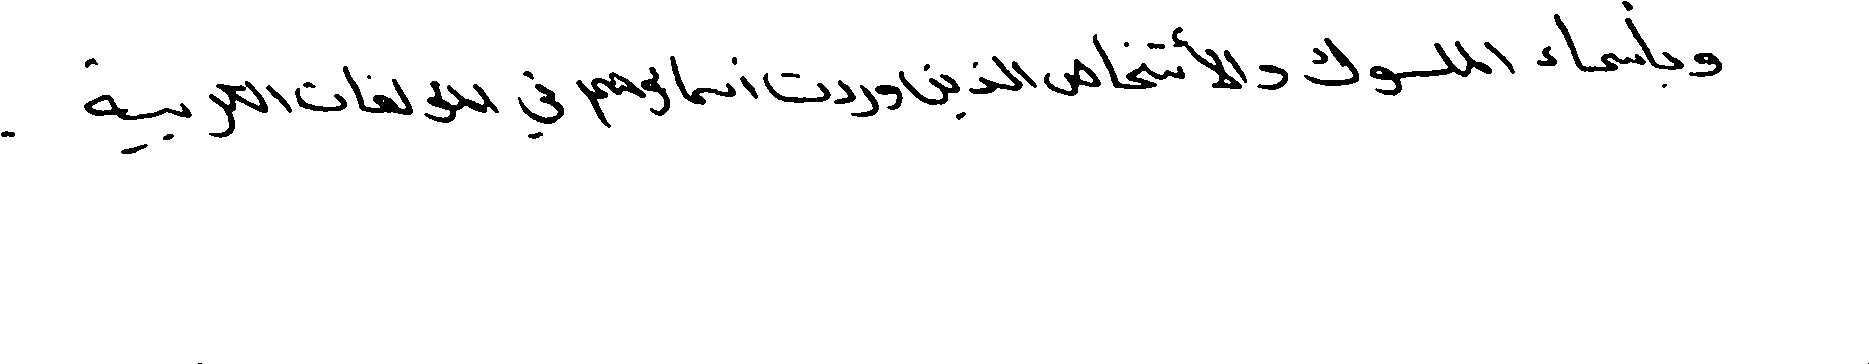 وبأسماء الملوك والأشخاص الذين وردت أسماؤهم في المؤلفات العربية .